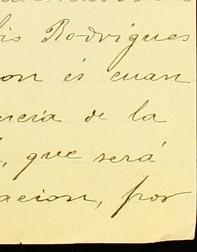 is Rodrigues
on és cuan
ncia de la
, que será
acion, por